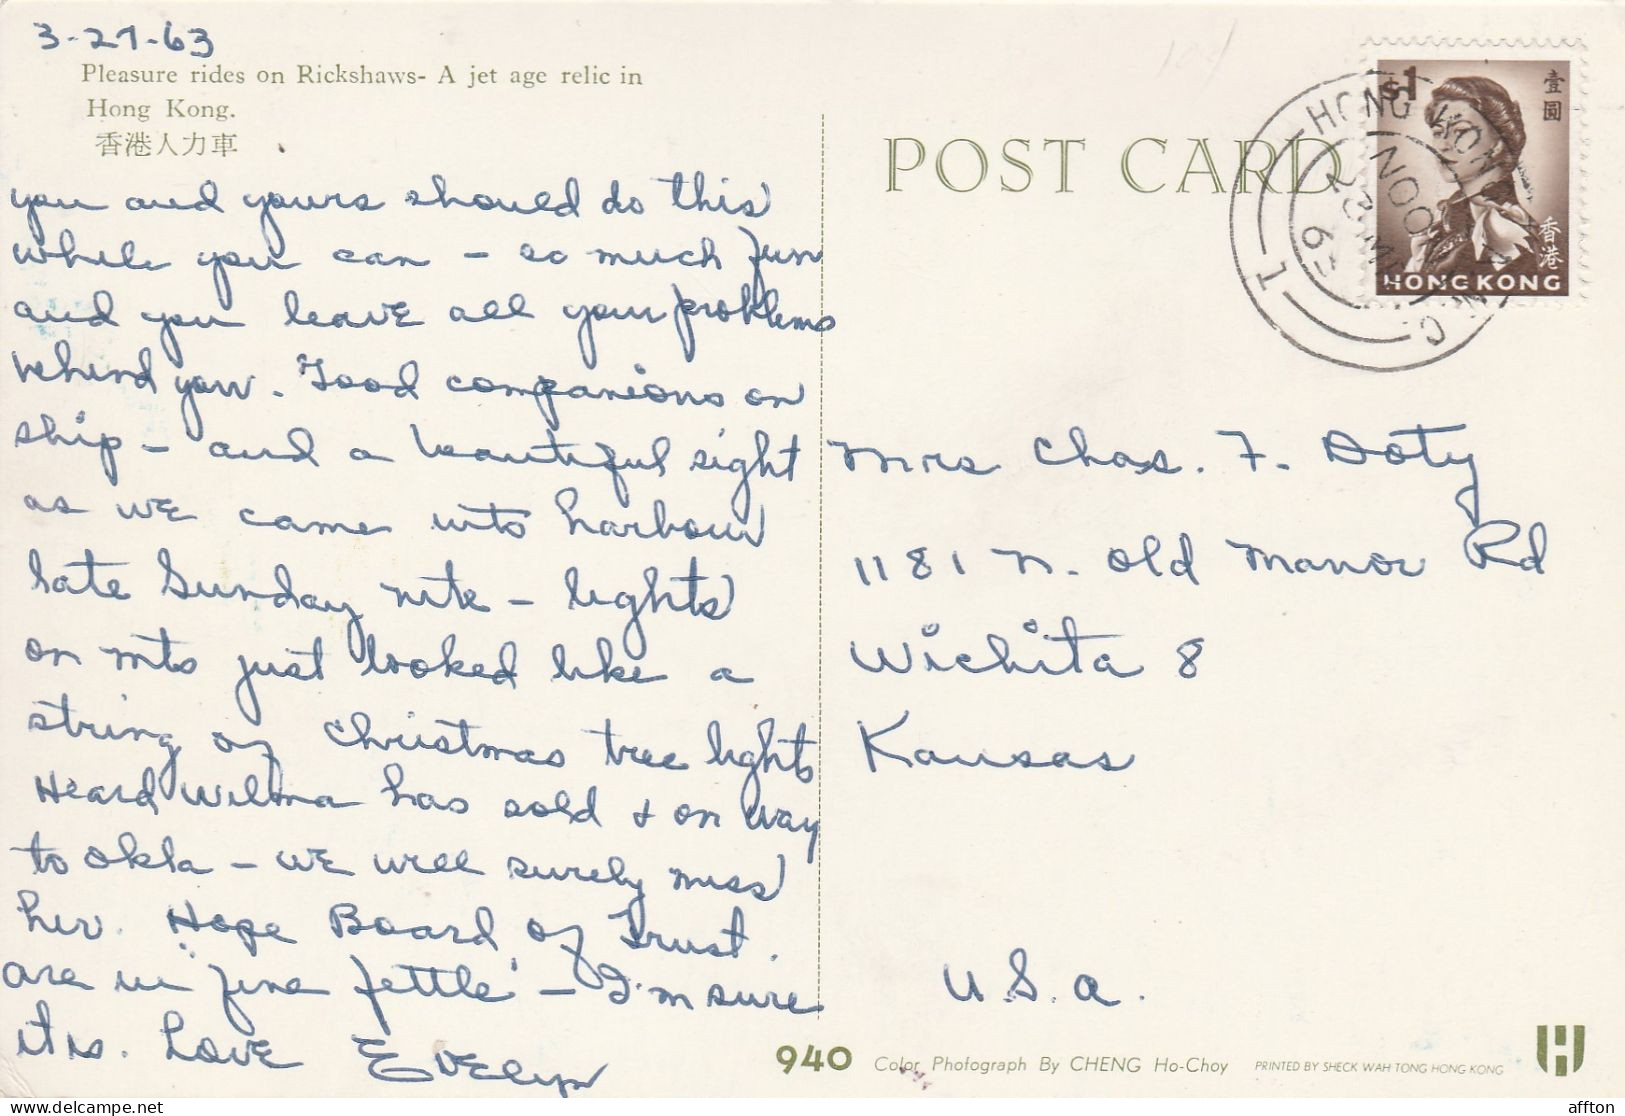 3-27-63
Pleasure rides on Rickshaws- A jet age relic in
Hong Kong.
香港人力車
you and yours should do this
while you can - so much fun
and you leave all your problems
behind you. Good companions on
ship - and a beautiful sight
as we came into harbour
late Sunday nite - lights
on mts just looked like a
string of Christmas tree lights
Heard Wilma has sold & on way
to Okla - we will surely miss
her. Hope Board of Trust.
are in "fine fettle" - I'm sure
it is. Love Evelyn
POST CARD
HONG KONG
1
$1
壹圓
香港
HONG KONG
Mrs Chas. F. Doty
1181 N. Old Manor Rd
Wichita 8
Kansas
U.S.A.
940 Color Photograph By CHENG Ho-Choy PRINTED BY SHECK WAH TONG HONG KONG
affton